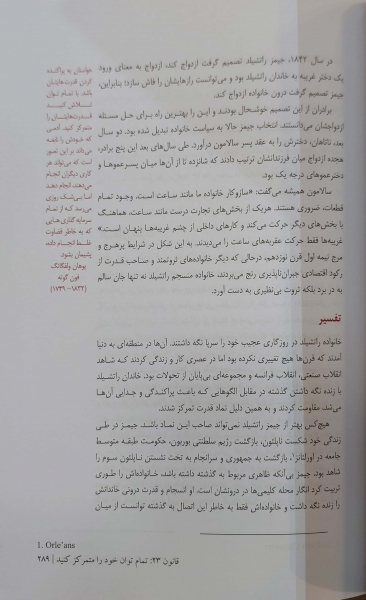 در سال ۱۸۴۲، جیمز راتشیلد تصمیم گرفت ازدواج کند، ازدواج به معنای ورود
یک دختر غریبه به خاندان راتشیلد بود و می‌توانست رازهایشان را فاش سازد؛ بنابراین،
جیمز تصمیم گرفت درون خانواده ازدواج کند.
برادران از این تصمیم خوشحال بودند و این را بهترین راه برای حل مسئله
ازدواجشان می‌دانستند. انتخاب جیمز حالا به سیاست خانواده تبدیل شده بود. دو سال
بعد، ناتاهان، دخترش را به عقد پسر سالامون درآورد. طی سال‌های بعد این پنج برادر،
هجده ازدواج میان فرزندانشان ترتیب دادند که شانزده تا از آن‌ها میان پسرعموها و
دخترعموهای درجه یک بود.
سالامون همیشه می‌گفت: «سازوکار خانواده ما مانند ساعت است. وجود تمام
قطعات، ضروری هستند. هریک از بخش‌های تجارت درست مانند ساعت، هماهنگ
با بخش‌های دیگر حرکت می‌کند و کارهای داخلی از چشم غریبه‌ها پنهان است.»
غریبه‌ها فقط حرکت عقربه‌های ساعت را می‌دیدند. به این شکل در شرایط پرهرج و
مرج نیمه اول قرن نوزدهم، درحالی که دیگر خانواده‌های ثروتمند و صاحب قدرت از
رکود اقتصادی جبران‌ناپذیری رنج می‌بردند، خانواده منسجم راتشیلد نه تنها جان سالم
به در برد بلکه ثروت بی‌نظیری به دست آورد.
حواستان به پراکنده
کردن قدرت‌هایتان
باشد. با تمام توان
تلاش کنید
قدرت‌هایتان را
متمرکز کنید. آدمی
که خودش را نابغه
می‌داند بر این تصور
است که می‌تواند هر
کاری دیگران انجام
می‌دهند، انجام دهد
اما بی‌شک روزی
می‌رسد که از تمام
سرمایه گذاری‌هایی
که به خاطر قضاوت
غلط انجام داده،
پشیمان بشود.
یوهان ولفگانگ
فون گوته
(۱۸۳۲-۱۷۴۹)
تفسیر
خانواده راتشیلد در روزگاری عجیب خود را سرپا نگه داشتند. آن‌ها در منطقه‌ای به دنیا
آمدند که قرن‌ها هیچ تغییری نکرده بود اما در عصری کار و زندگی کردند که شاهد
انقلاب صنعتی، انقلاب فرانسه و مجموعه‌ای بی‌پایان از تحولات بود. خاندان راتشیلد
با زنده نگه داشتن گذشته در مقابل الگوهایی که باعث پراکندگی و جدایی آن‌ها
می‌شد، مقاومت کردند و به همین دلیل نماد قدرت تمرکز شدند.
هیچ‌کس بهتر از جیمز راتشیلد نمی‌تواند صاحب این نماد باشد. جیمز در طی
زندگی خود شکست ناپلئون، بازگشت رژیم سلطنتی بوربون، حکومت طبقه متوسط
جامعه در اورلئانز۱، بازگشت به جمهوری و سرانجام به تخت نشستن ناپلئون سوم را
شاهد بود. جیمز بی‌آنکه ظاهری مربوط به گذشته داشته باشد، خانواده‌اش را طوری
تربیت کرد انگار محله کلیمی‌ها در درونشان است. او انسجام و قدرت درونی خاندانش
را زنده نگه داشت و خانواده‌اش فقط به خاطر این اتصال به گذشته توانست از میان
1. Orle'ans
قانون ۲۳: تمام توان خود را متمرکز کنید | ۲۸۹